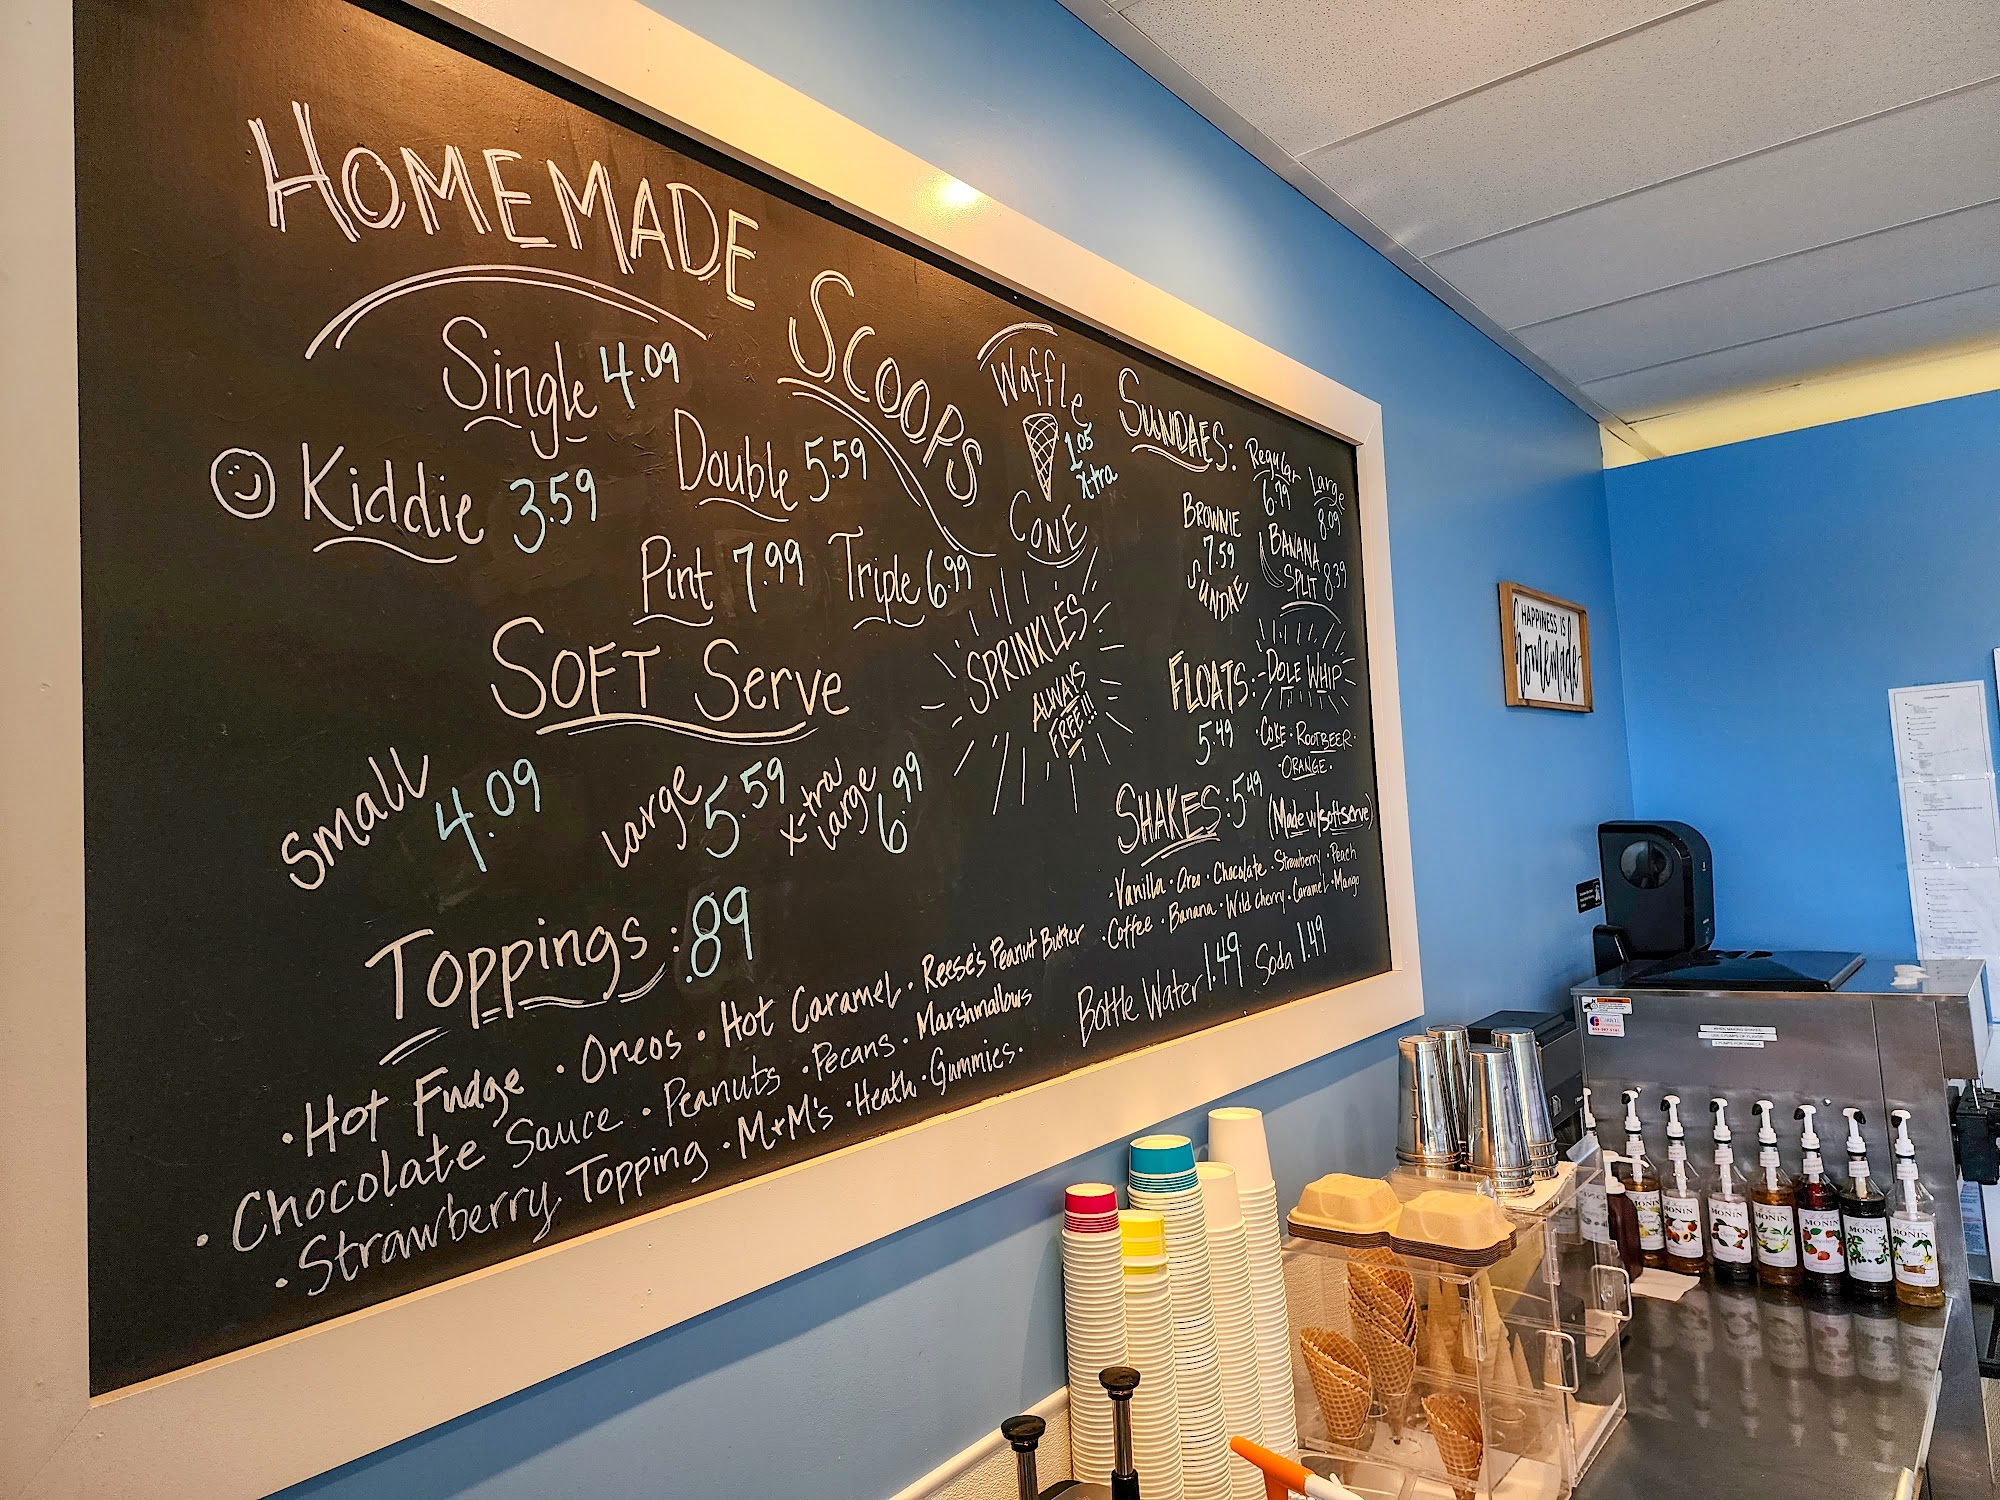 HOMEMADE SCOOPS
Single 4.09
Kiddie 3.59
Double 5.59
Pint 7.99
Triple 6.99
Waffle
1.05
x-tra
CONE
SOFT Serve
small 4.09
large 5.59
x-tra large 6.99
SPRINKLES
ALWAYS
FREE!!!
Toppings: .89
· Hot Fudge · Oreos · Hot Caramel · Reese's Peanut Butter
· Chocolate Sauce · Peanuts · Pecans · Marshmallows
· Strawberry Topping · M+M's · Heath · Gummies ·
SUNDAES:
Regular 6.79
Large 8.09
BROWNIE
7.59
SUNDAE
BANANA
SPLIT 8.39
FLOATS:
5.49
DOLE WHIP
· COKE · ROOTBEER ·
· ORANGE ·
SHAKES: 5.49 (Made w/ softserve)
· Vanilla · Oreo · Chocolate · Strawberry · Peach
· Coffee · Banana · Wild Cherry · Caramel · Mango
Bottle Water 1.49 Soda 1.49
HAPPINESS IS
homemade
MONIN
MONIN
MONIN
MONIN
MONIN
MONIN
MONIN